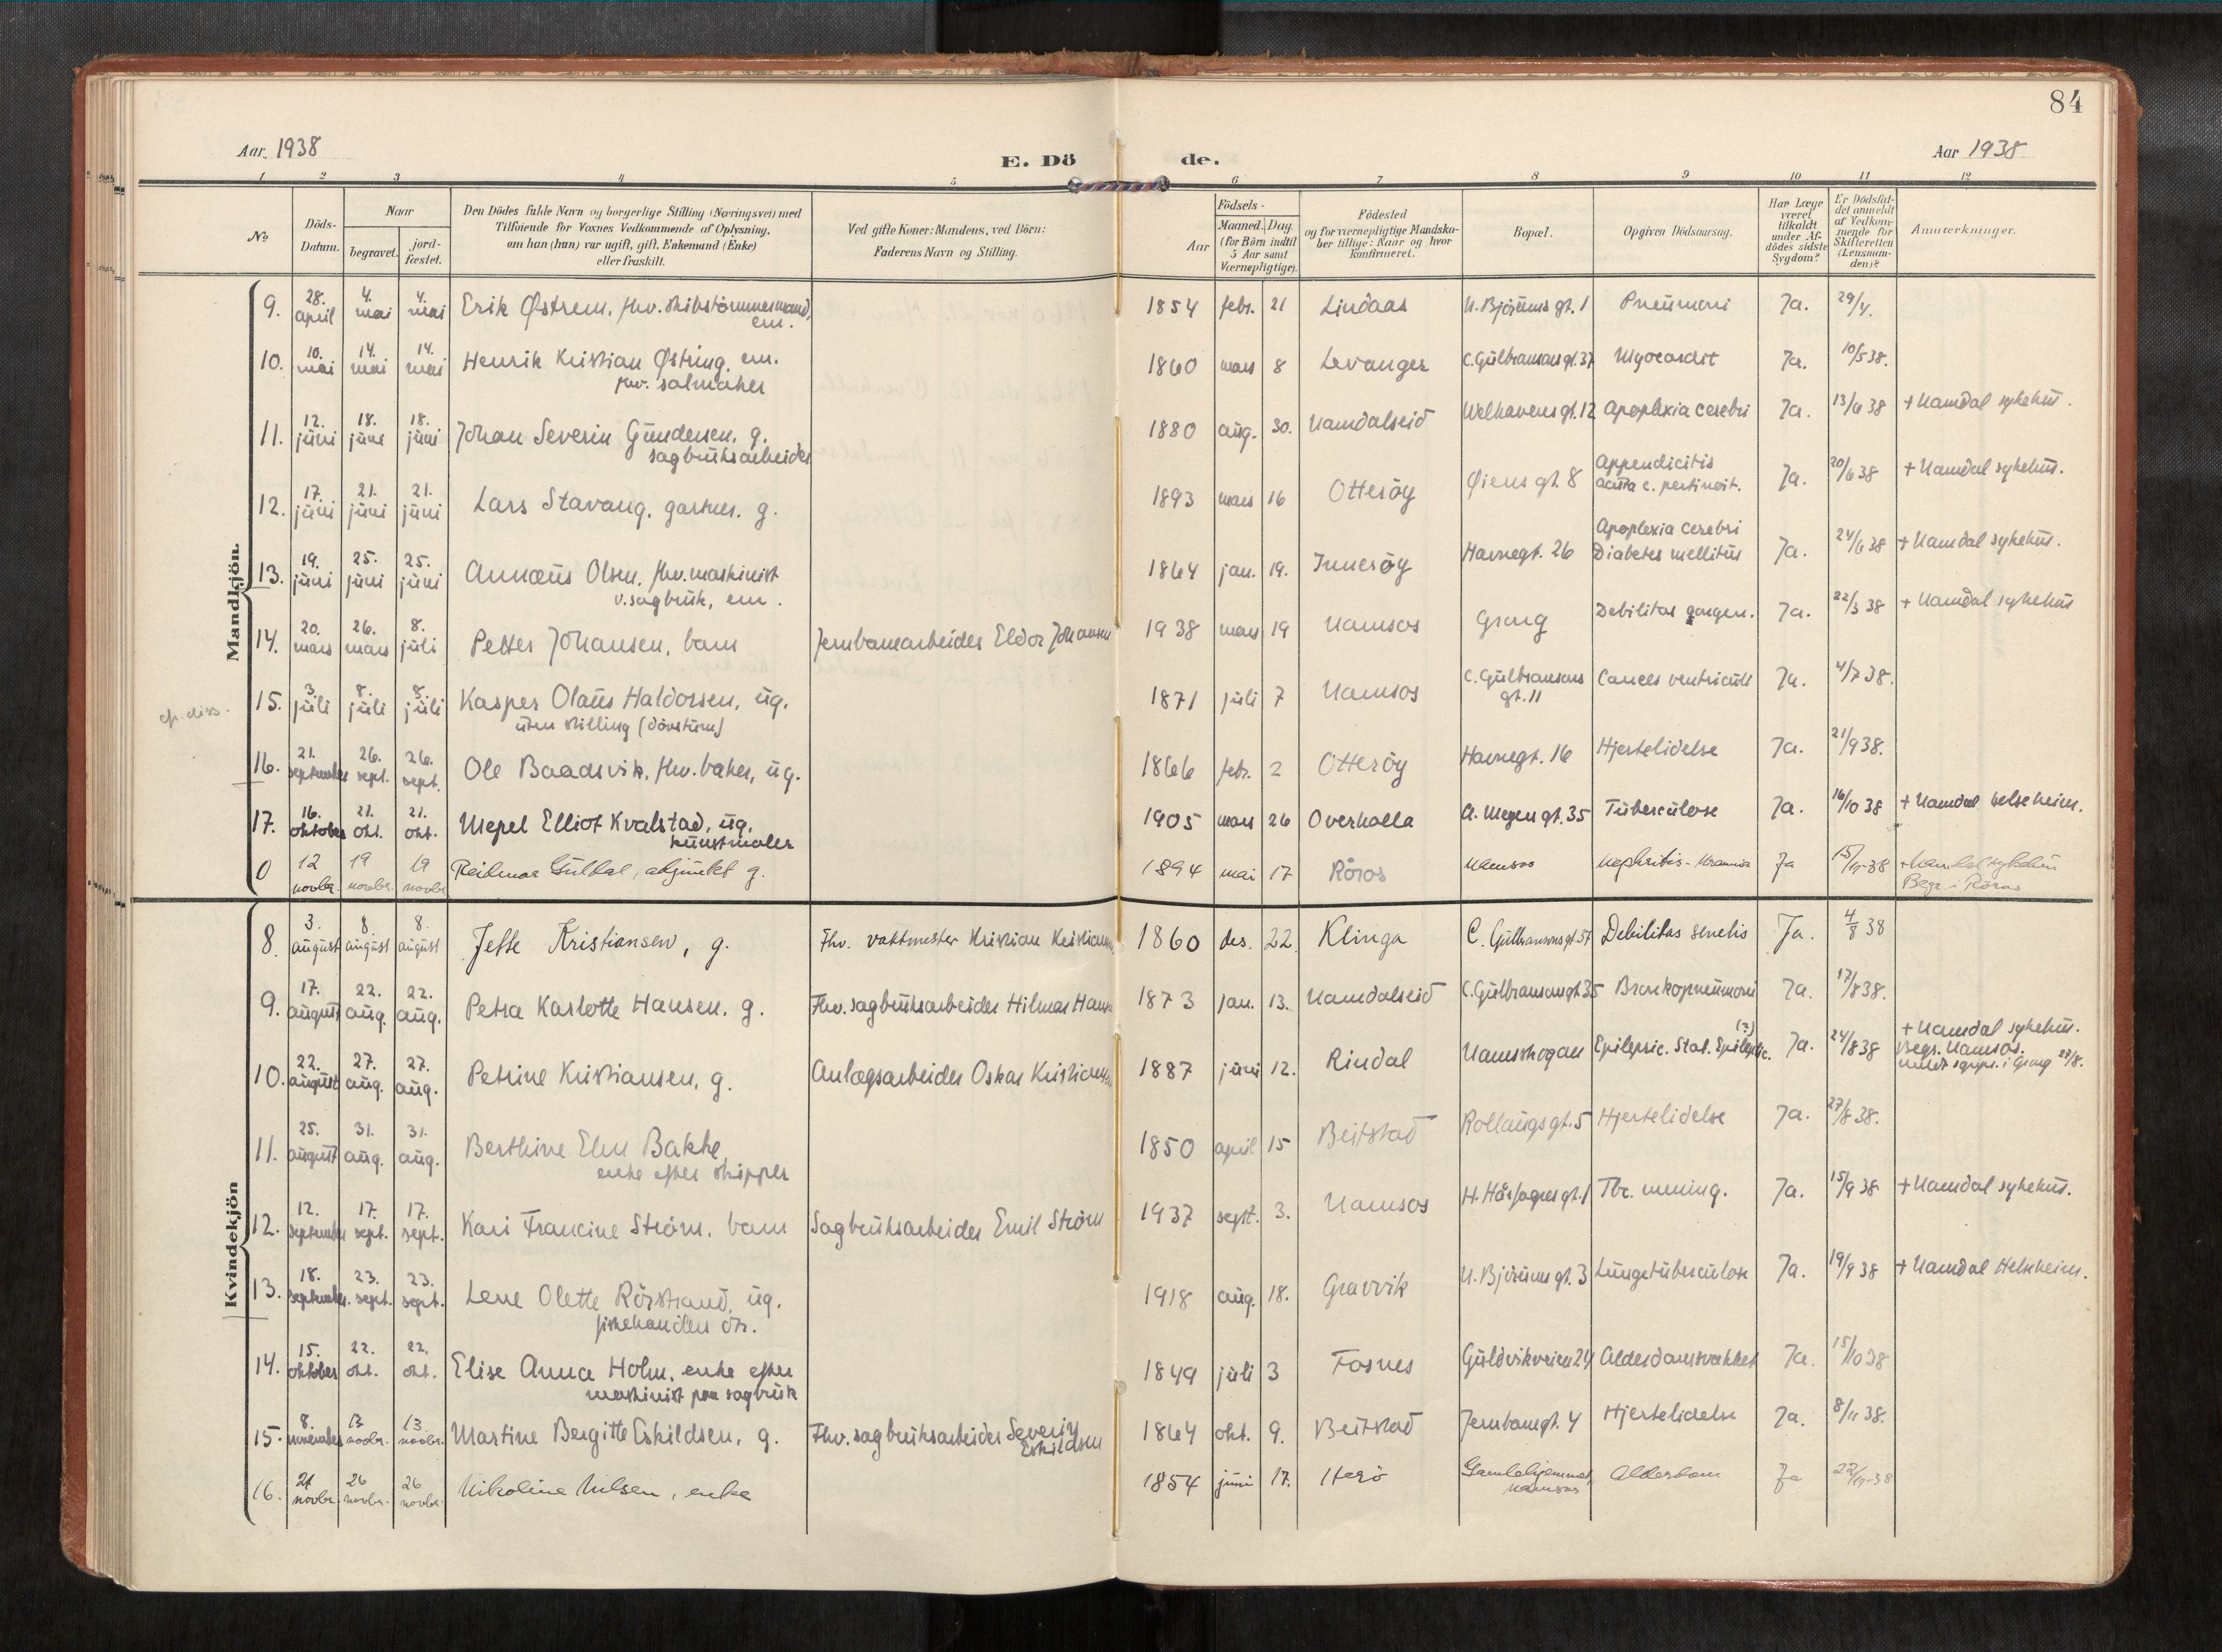 84
Aar 1938
E. Dö de.
Aar 1938
1 2 3 4 5 6 7 8 9 10 11 12
No
Döds-
Datum.
Naar
begravet.
jord-
fæstet.
Den Dödes fulde Navn og borgerlige Stilling (Næringsvei) med
Tilföiende for Voxnes Vedkommende af Oplysning,
om han (hun) var ugift, gift, Enkemand (Enke)
eller fraskilt.
Ved gifte Koner: Mandens, ved Börn:
Faderens Navn og Stilling.
Födsels-
Aar
Maaned. Dag.
(for Börn indtil
5 Aar samt
Værnepligtige).
Födested
og for værnepligtige Mandska-
ber tillige: Naar og hvor
konfirmeret.
Bopæl.
Opgiven Dödsaarsag.
Har Læge
været
tilkaldt
under Af-
dödes sidste
Sygdom?
Er Dödsfal-
det anmeldt
af Vedkom-
mende for
Skifteretten
(Lensman-
den)?
Anmærkninger.
Mandkjön.
9. 28. april 4. mai 4. mai Erik Østrem, fhv. skibstömmermand, em. 1854 febr. 21 Lindaas U. Bjørums gt. 1 Pneumoni Ja. 29/4.
10. 10. mai 14. mai 14. mai Henrik Kristian Østring, em.
fhv. salmaker 1860 mars 8 Levanger C. Gulbransons gt. 37 Myocardit Ja. 10/5 38.
11. 12. juni 18. juni 18. juni Johan Severin Gundersen, g.
sagbruksarbeider 1880 aug. 30. Namdalseid Welhavens gt. 12 Apoplexia cerebri Ja. 13/6 38 + Namdal sykehus.
12. 17. juni 21. juni 21. juni Lars Stavang, gartner. g. 1893 mars 16 Otterøy Øiens gt. 8 Appendicitis
acuta c. peritonit. Ja. 20/6 38 + Namdal sykehus.
13. 19. juni 25. juni 25. juni Annæus Olsen, fhv. maskinist
v. sagbruk, em. 1864 jan. 19. Inderøy Havnegt. 26 Apoplexia cerebri
Diabetes mellitus Ja. 24/6 38 + Namdal sykehus.
14. 20. mars 26. mars 8. juli Petter Johansen, barn Jernbanearbeider Eldor Johansen 1938 mars 19 Namsos Grong Debilitas congen. Ja. 22/3 38 + Namdal sykehus
15. 3. juli 8. juli 8. juli Kasper Olaus Haldorsen, ug.
uten stilling (døvstum) 1871 juli 7 Namsos C. Gulbransons
gt. 11 Cancer ventriculi Ja. 4/7 38.
16. 21. september 26. sept. 26. sept. Ole Baadsvik, fhv. baker, ug. 1866 febr. 2 Otterøy Havnegt. 16 Hjertelidelse Ja. 21/9 38.
17. 16. oktober 21. okt. 21. okt. Mepel Elliot Kvalstad, ug.
kunstmaler 1905 mars 26 Overhalla A. Meyers gt. 35 Tuberculose Ja. 16/10 38 + Namdal helseheim.
0 12 novbr. 19 novbr. 19 novbr. Reidmar Guldal, adjunkt g. 1894 mai 17 Röros Namsos Nephritis - Uræmia Ja 15/11-38 + Namdal sykehus
Begr. i Röros
Kvindekjön
8. 3. august 8. august 8. august Jette Kristiansen, g. Fhv. vaktmester Kristian Kristiansen 1860 des. 22. Klinga C. Gulbransons gt. 37 Debilitas senelis Ja. 4/8 38
9. 17. august 22. aug. 22. aug. Petra Karlotte Hansen, g. Fhv. sagbruksarbeider Hilmar Hansen 1873 jan. 13. Namdalseid C. Gulbransons gt. 35 Bronkopneumoni Ja. 17/8 38.
10. 22. august 27. aug. 27. aug. Petrine Kristiansen, g. Anlægsarbeider Oskar Kristiansen 1887 juni 12. Rindal Namsskogan Epilepsie. Stat. Epileptic. (?) Ja. 24/8 38 + Namdal sykehus.
Begr. Namsos.
meldt i Grong 27/8.
11. 25. august 31. aug. 31. aug. Berthine Elen Bakke,
enke efter skipper 1850 april 15 Beitstad Rollaugs gt. 5 Hjertelidelse Ja. 27/8 38.
12. 12. september 17. sept. 17. sept. Kari Francine Strøm, barn Sagbruksarbeider Emil Strøm 1937 sept. 3. Namsos H. Hårfagres gt. 1 Tbc. mening. Ja. 15/9 38 + Namdal sykehus.
13. 18. september 23. sept. 23. sept. Lene Olette Rörstrand, ug.
fiskehandler dtr. 1918 aug. 18. Gravvik U. Bjørums gt. 3 Lungetuberculose Ja. 19/9 38 + Namdal Helseheim.
14. 15. oktober 22. okt. 22. okt. Elise Anna Holm, enke efter
maskinist paa sagbruk 1849 juli 3 Fosnes Guldvikveien 24 Alderdomsvakket Ja. 15/10 38
15. 8. november 13 novbr. 13. novbr. Martine Bergitte Eskildsen, g. Fhv. sagbruksarbeider Severin
Eskildsen 1864 okt. 9. Beitstad Jernbanegt. 4 Hjertelidelse Ja. 8/11 38.
16. 21 novbr. 26 novbr. 26 novbr. Nikoline Nilsen, enke 1854 juni 17. Herö Gamlehjemmet,
Namsos Alderdom Ja 22/11-38